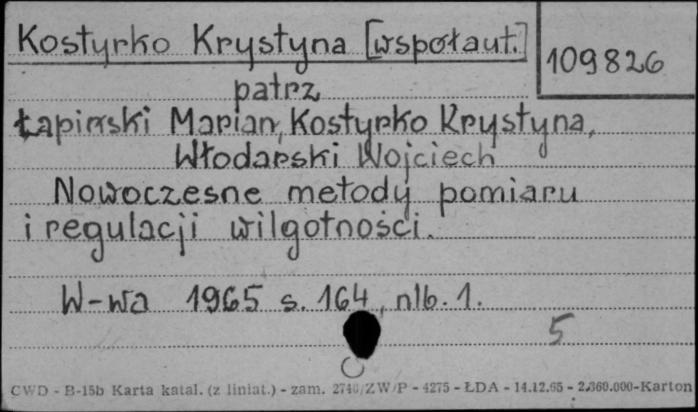 Kostyrko Krystyna [współaut.]
109826
patrz
Łapiński Marian, Kostyrko Krystyna,
Włodarski Wojciech
Nowoczesne metody pomiaru
i regulacji wilgotności.
W-wa 1965 s. 164, nlb. 1.
5
CWD - B-15b Karta katal. (z liniat.) - zam. 2746/ZW/P - 4275 - ŁDA - 14.12.65 - 2.360.000-Karton